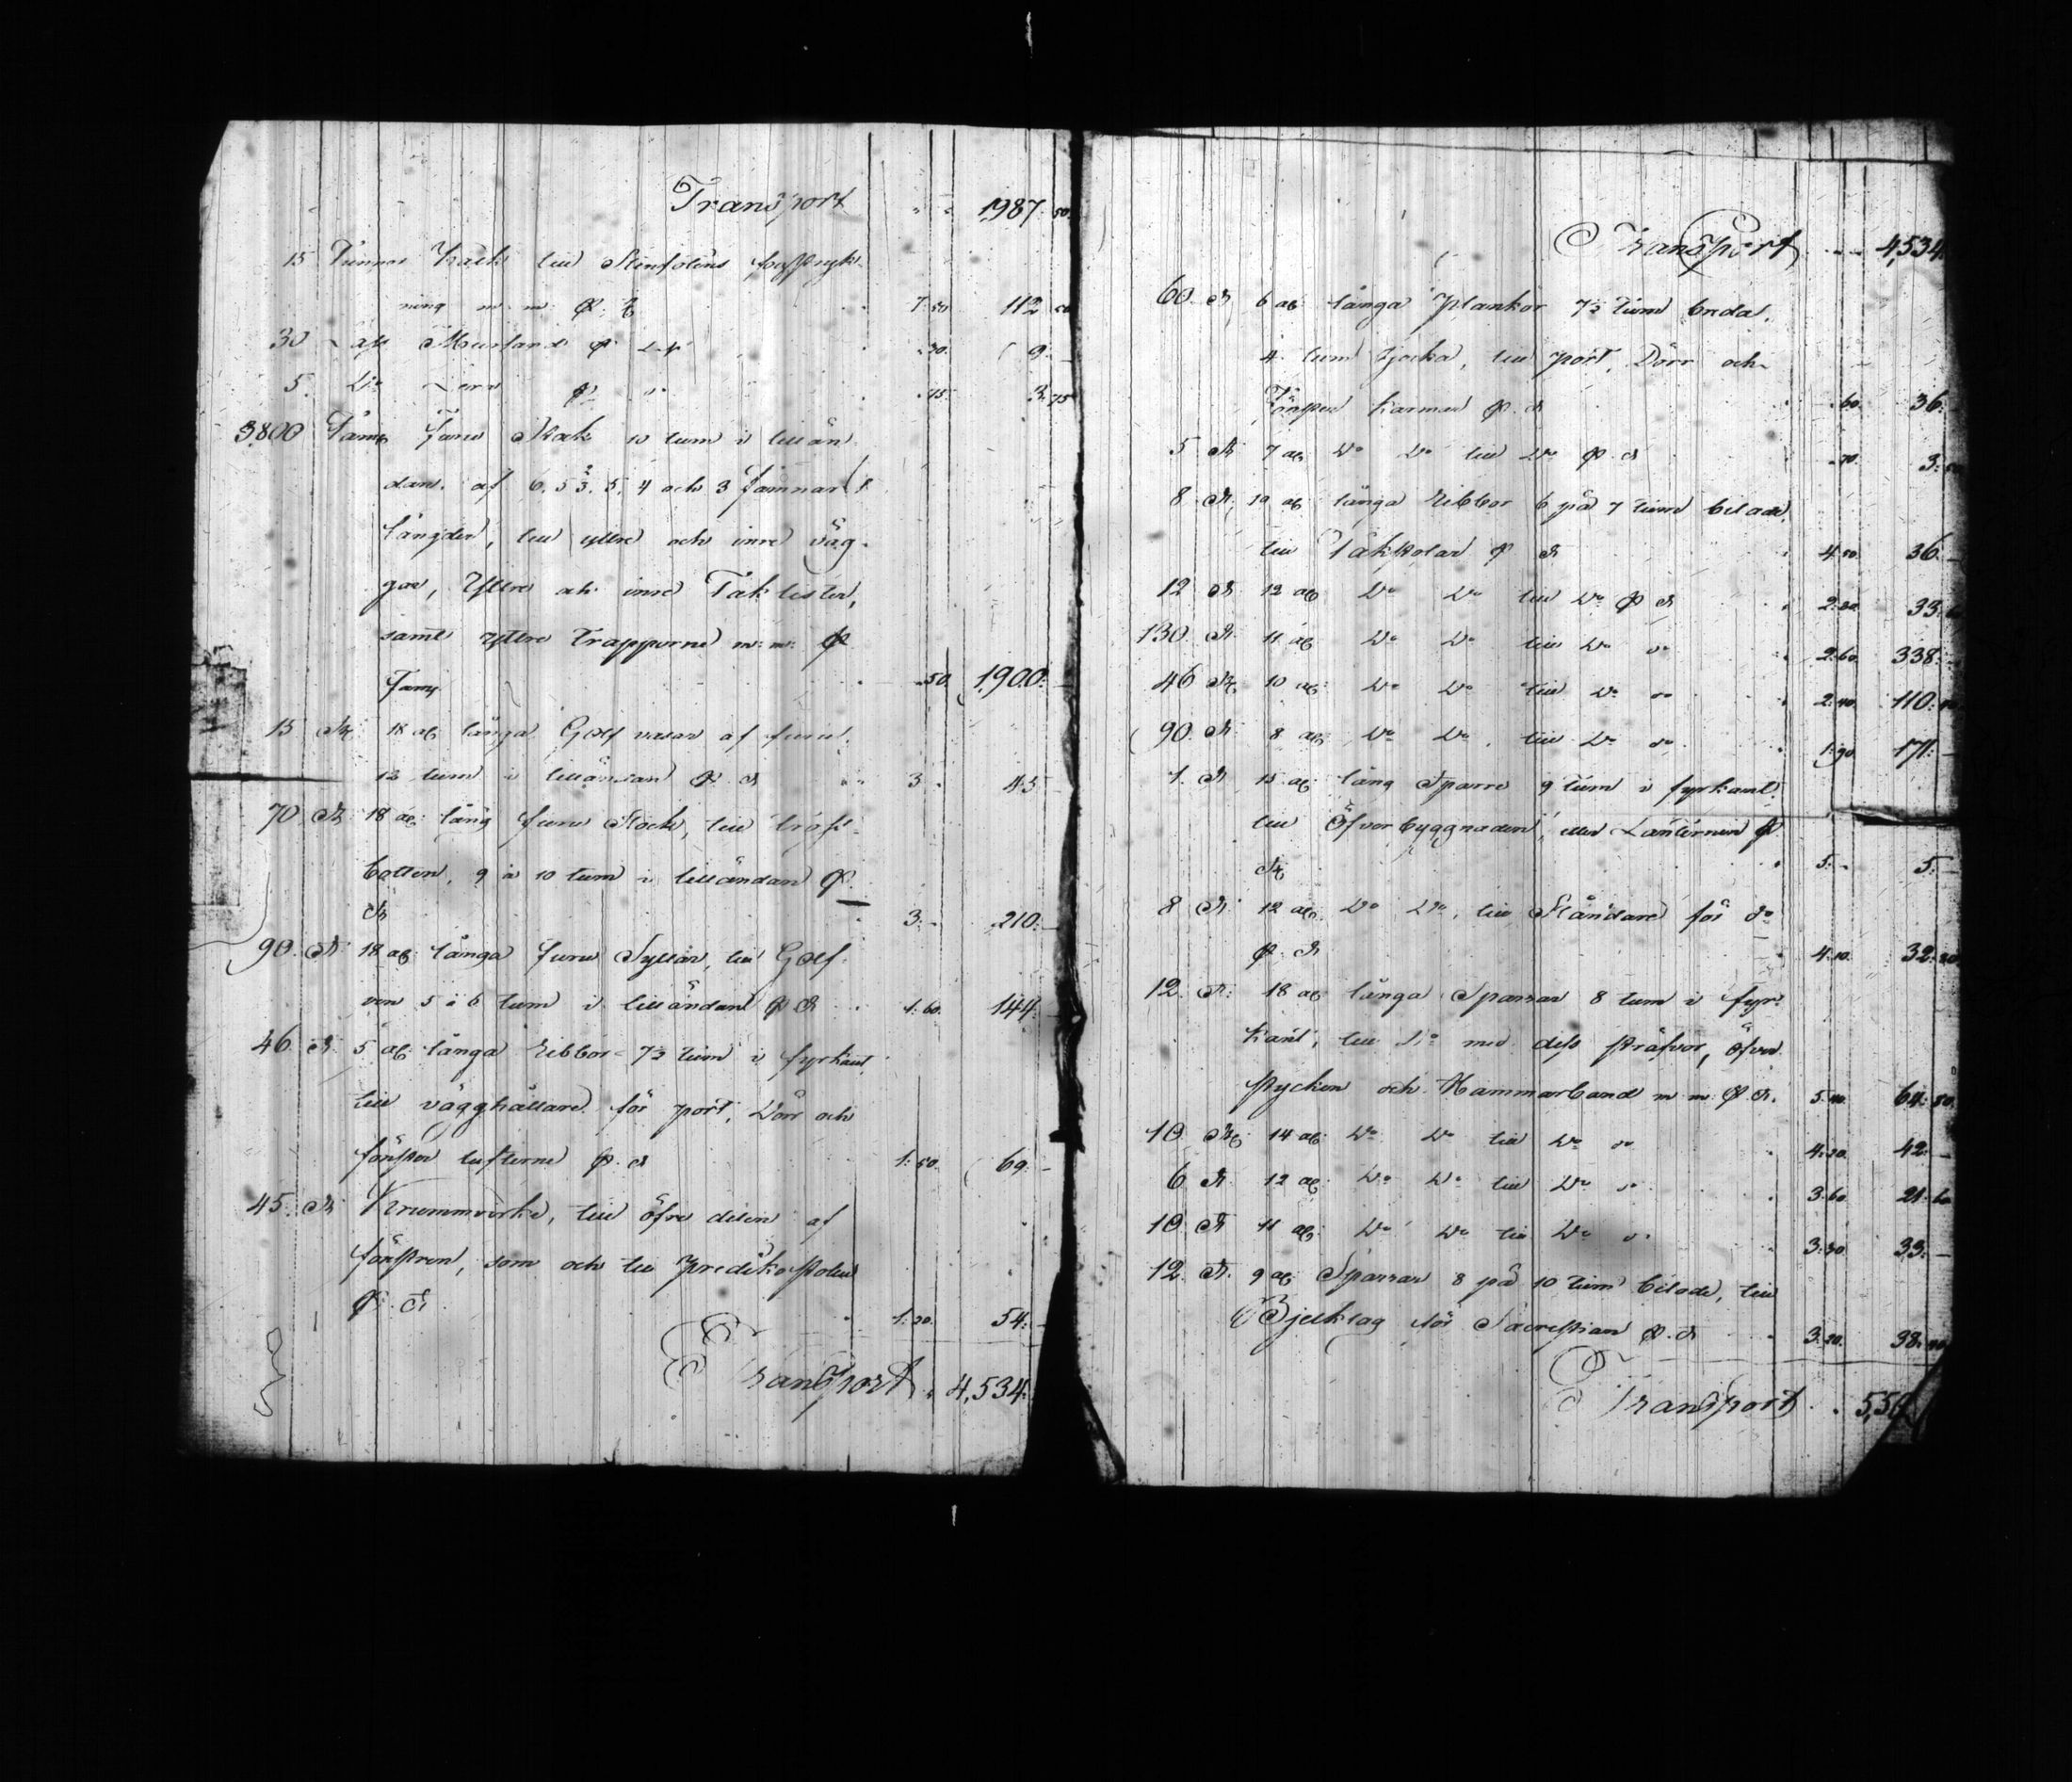 Transport " " 1987: 50
15 Tunnor Kalk till Stenfotens forstryk-
ning m: m: P: T 7: 50 112 50
30 Lass Mursand P L-s " 30. 9. –
5. D:o Lera P " " 75 3: 75
3,800 Famn Furu Stock 10 tum i lillän
dan. af 6, 5 3/2, 5, 4 och 3 famnars
längder, till yttre och inre väg-
gar, Yttre och inre Taklister,
samt yttre trapporne m: m: P
Famn " 50 1,900: –
15 St 18 al: långa Golf vasar af furu,
12 tum i lilländan P. st 3 " 45 –
70 St 18 al: lång furu Stock, till tross-
botten, 9 à 10 tum i lilländan P.
St 3: – 210: –
90. St 18 al: långa furu Syllar, till Golf-
ven 5 à 6 tum i lilländan P St 1: 60. 144: –
46. St. 5 al: långa Ribbor 7½ tum i fyrkant
till vägghållare för port, Dörr och
fönster lufterne P. st 1: 50. 69: –
45. St Krummvirke, till öfre delen af
fönstren, som och till Predikostolen
P. St. 1: 20. 54: –
Transport " 4,534:
Transport " " 4,534.
60. St 6 al: långa Plankor 7½ tum breda,
4 tum tjocka, till port, Dörr och
Fönster karmar P. st " 60. 36:
5 St 7 al: D:o D:o till D:o P. st " 70. 3: 50
8 St. 19 al: långa Ribbor 6 på 7 tum bilade,
till Takstolar P St 4: 50 36: –
12 St 12 al: D:o D:o till D:o P St 2: 80. 33: 6
130. St. 11 al: D:o D:o till D:o d:o 2: 60. 338: –
46 St 10 al: D:o D:o till D:o d:o 2: 40. 110: 40
90. St 8 al: D:o D:o till D:o d:o 1: 90 171: –
1. St 15 al: lång Sparre 9 tum i fyrkant:
till Öfverbyggnaden, eller Lanternin P
St 5: – 5. –
8 St. 12 al: D:o D:o, till Ståndare för d:o
P. St 4: 10. 32: 80
12. St. 18 al: långa Sparrar 8 tum i fyr-
kant, till D:o med dess sträfvor, Öfver
stycken och Hammarband m m: P St. 5: 40. 64: 80.
10 St 14 al: D:o D:o till D:o d:o 4: 20. 42: –
6 St 12 al: D:o D:o till D:o d:o 3: 60 21: 60
10 St 11 al: D:o D:o till D:o d:o 3: 30. 33: –
12. St. 9 al: Sparrar 8 på 10 tum bilade, till
Bjelklag för Sacrestian P. st 3: 20. 38: 40
Transport "